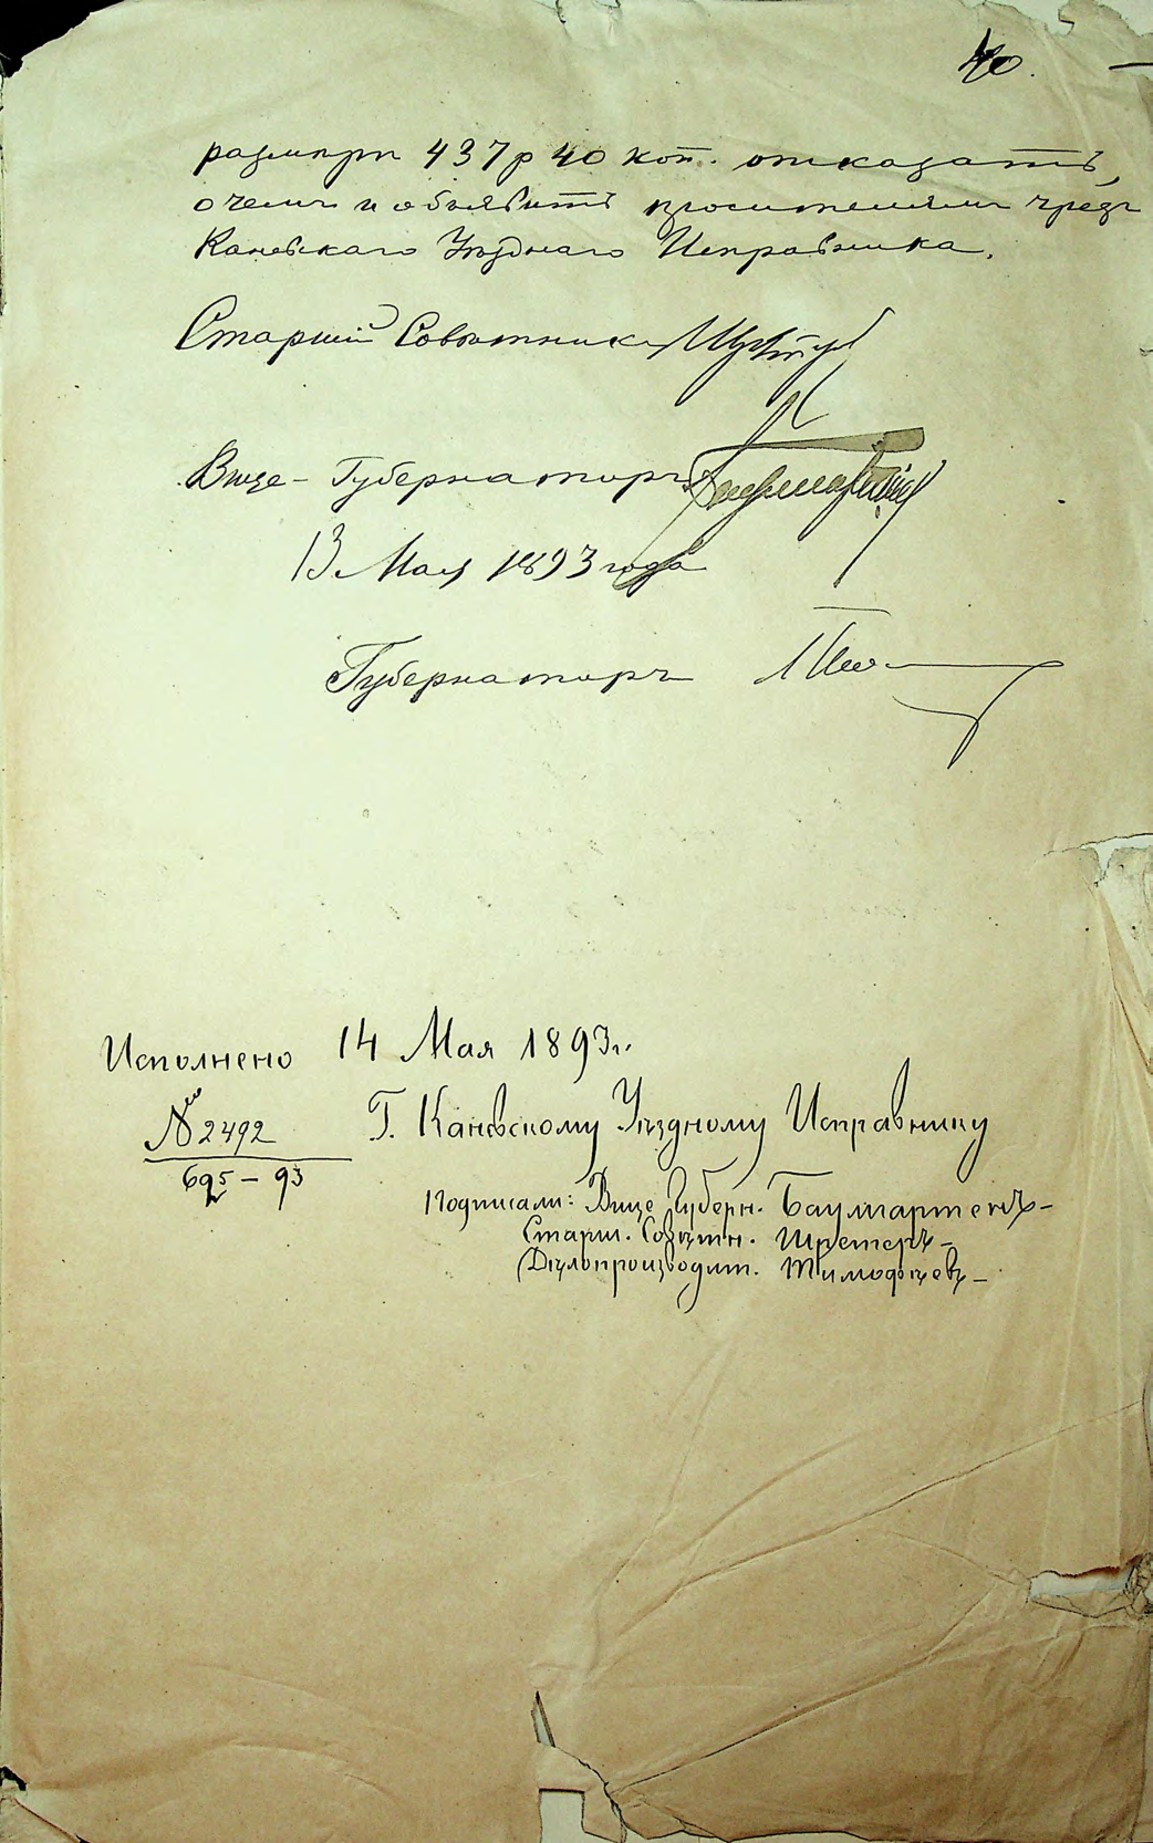 40.
размѣрѣ 437 р 40 коп. отказать,
о чемъ и объявить просителямъ чрезъ
Каневскаго Уѣзднаго Исправника.
Старшій Совѣтникъ
Вице-Губернаторъ
13 Мая 1893 года
Губернаторъ
Исполнено 14 Мая 1893 г.
№ 2492
695 - 93
Г. Каневскому Уѣздному Исправнику
Подписали: Вице Губерн. Баумгартенъ
Старш. Совѣтн. Шретеръ
Дѣлопроизводит. Тимофѣевъ